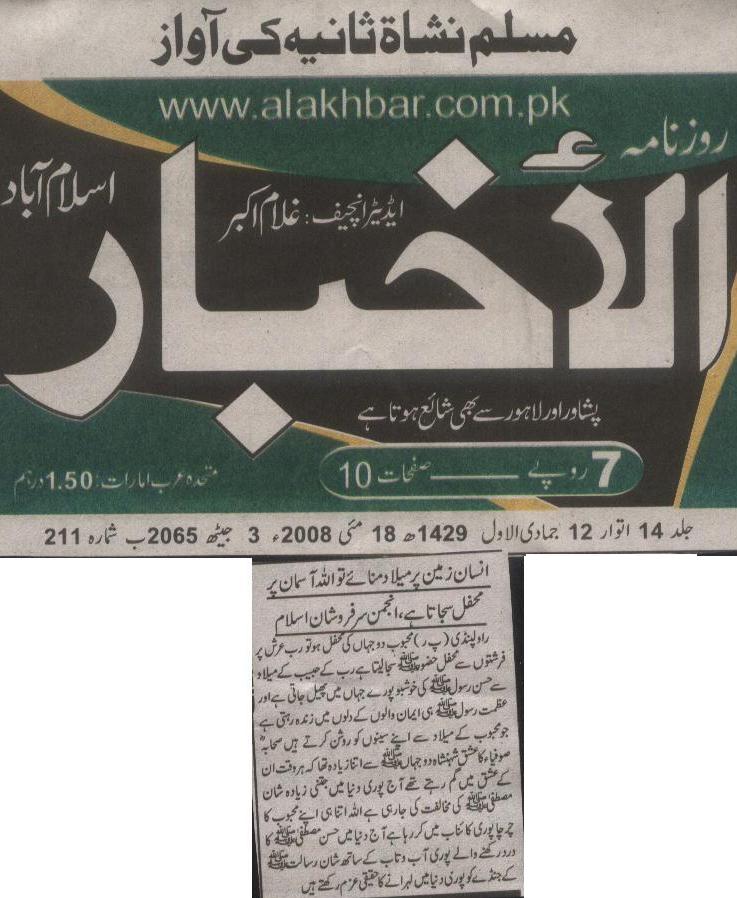 مسلم نشاۃ ثانیہ کی آواز
www.alakhbar.com.pk
روزنامہ
الأخبار
اسلام آباد
ایڈیٹر انچیف: غلام اکبر
پشاور اور لاہور سے بھی شائع ہوتا ہے
7 روپے ــــــــ صفحات 10
متحدہ عرب امارات: 1.50 درہم
جلد 14 اتوار 12 جمادی الاول 1429ھ 18 مئی 2008ء 3 جیٹھ 2065ب شمارہ 211
انسان زمین پر میلاد منائے تو اللہ آسمان پر
محفل سجاتا ہے، انجمن سرفروشان اسلام
راولپنڈی (پ ر) محبوب دو جہاں کی محفل ہو تو رب عرش پر
فرشتوں سے محفل حضور ﷺ سجا لیتا ہے رب کے حبیب کے میلاد
سے حسن رسول ﷺ کی خوشبو پورے جہاں میں پھیل جاتی ہے اور
عظمت رسول ﷺ ہی ایمان والوں کے دلوں میں زندہ رہتی ہے
جو محبوب کے میلاد سے اپنے سینوں کو روشن کرتے ہیں صحابہؓ
صوفیاء کا عشق شہنشاہ دو جہاں ﷺ سے اتنا زیادہ تھا کہ ہر وقت ان
کے عشق میں گم رہتے تھے آج پوری دنیا میں جتنی زیادہ شان
مصطفیٰ ﷺ کی مخالفت کی جا رہی ہے اللہ اتنا ہی اپنے محبوب کا
چرچا پوری کائنات میں کر رہا ہے آج دنیا میں حسن مصطفیٰ ﷺ کا
درد رکھنے والے پوری آب و تاب کے ساتھ شان رسالت ﷺ
کے جھنڈے کو پوری دنیا میں لہرانے کا حقیقی عزم رکھتے ہیں